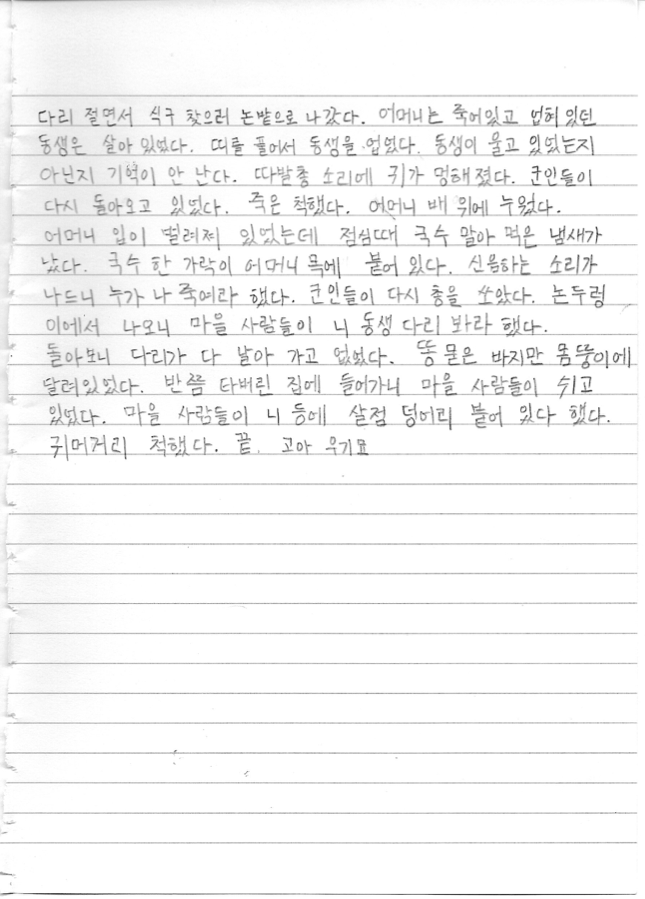 다리 절면서 식구 찾으러 논밭으로 나갔다. 어머니는 죽어있고 업혀 있던
동생은 살아 있었다. 띠를 풀어서 동생을 업었다. 동생이 울고 있었는지
아닌지 기억이 안 난다. 따발총 소리에 귀가 멍해졌다. 군인들이
다시 돌아오고 있었다. 죽은 척했다. 어머니 배 위에 누웠다.
어머니 입이 벌려져 있었는데 점심때 국수 말아 먹은 냄새가
났다. 국수 한 가락이 어머니 목에 붙어 있다. 신음하는 소리가
나드니 누가 나 죽여라 했다. 군인들이 다시 총을 쏘았다. 논두렁
이에서 나오니 마을 사람들이 니 동생 다리 봐라 했다.
돌아보니 다리가 다 날아 가고 없었다. 똥 묻은 바지만 몸뚱이에
달려있었다. 반쯤 타버린 집에 들어가니 마을 사람들이 쉬고
있었다. 마을 사람들이 니 등에 살점 덩어리 붙어 있다 했다.
귀머거리 척했다. 끝. 고아 우기묘